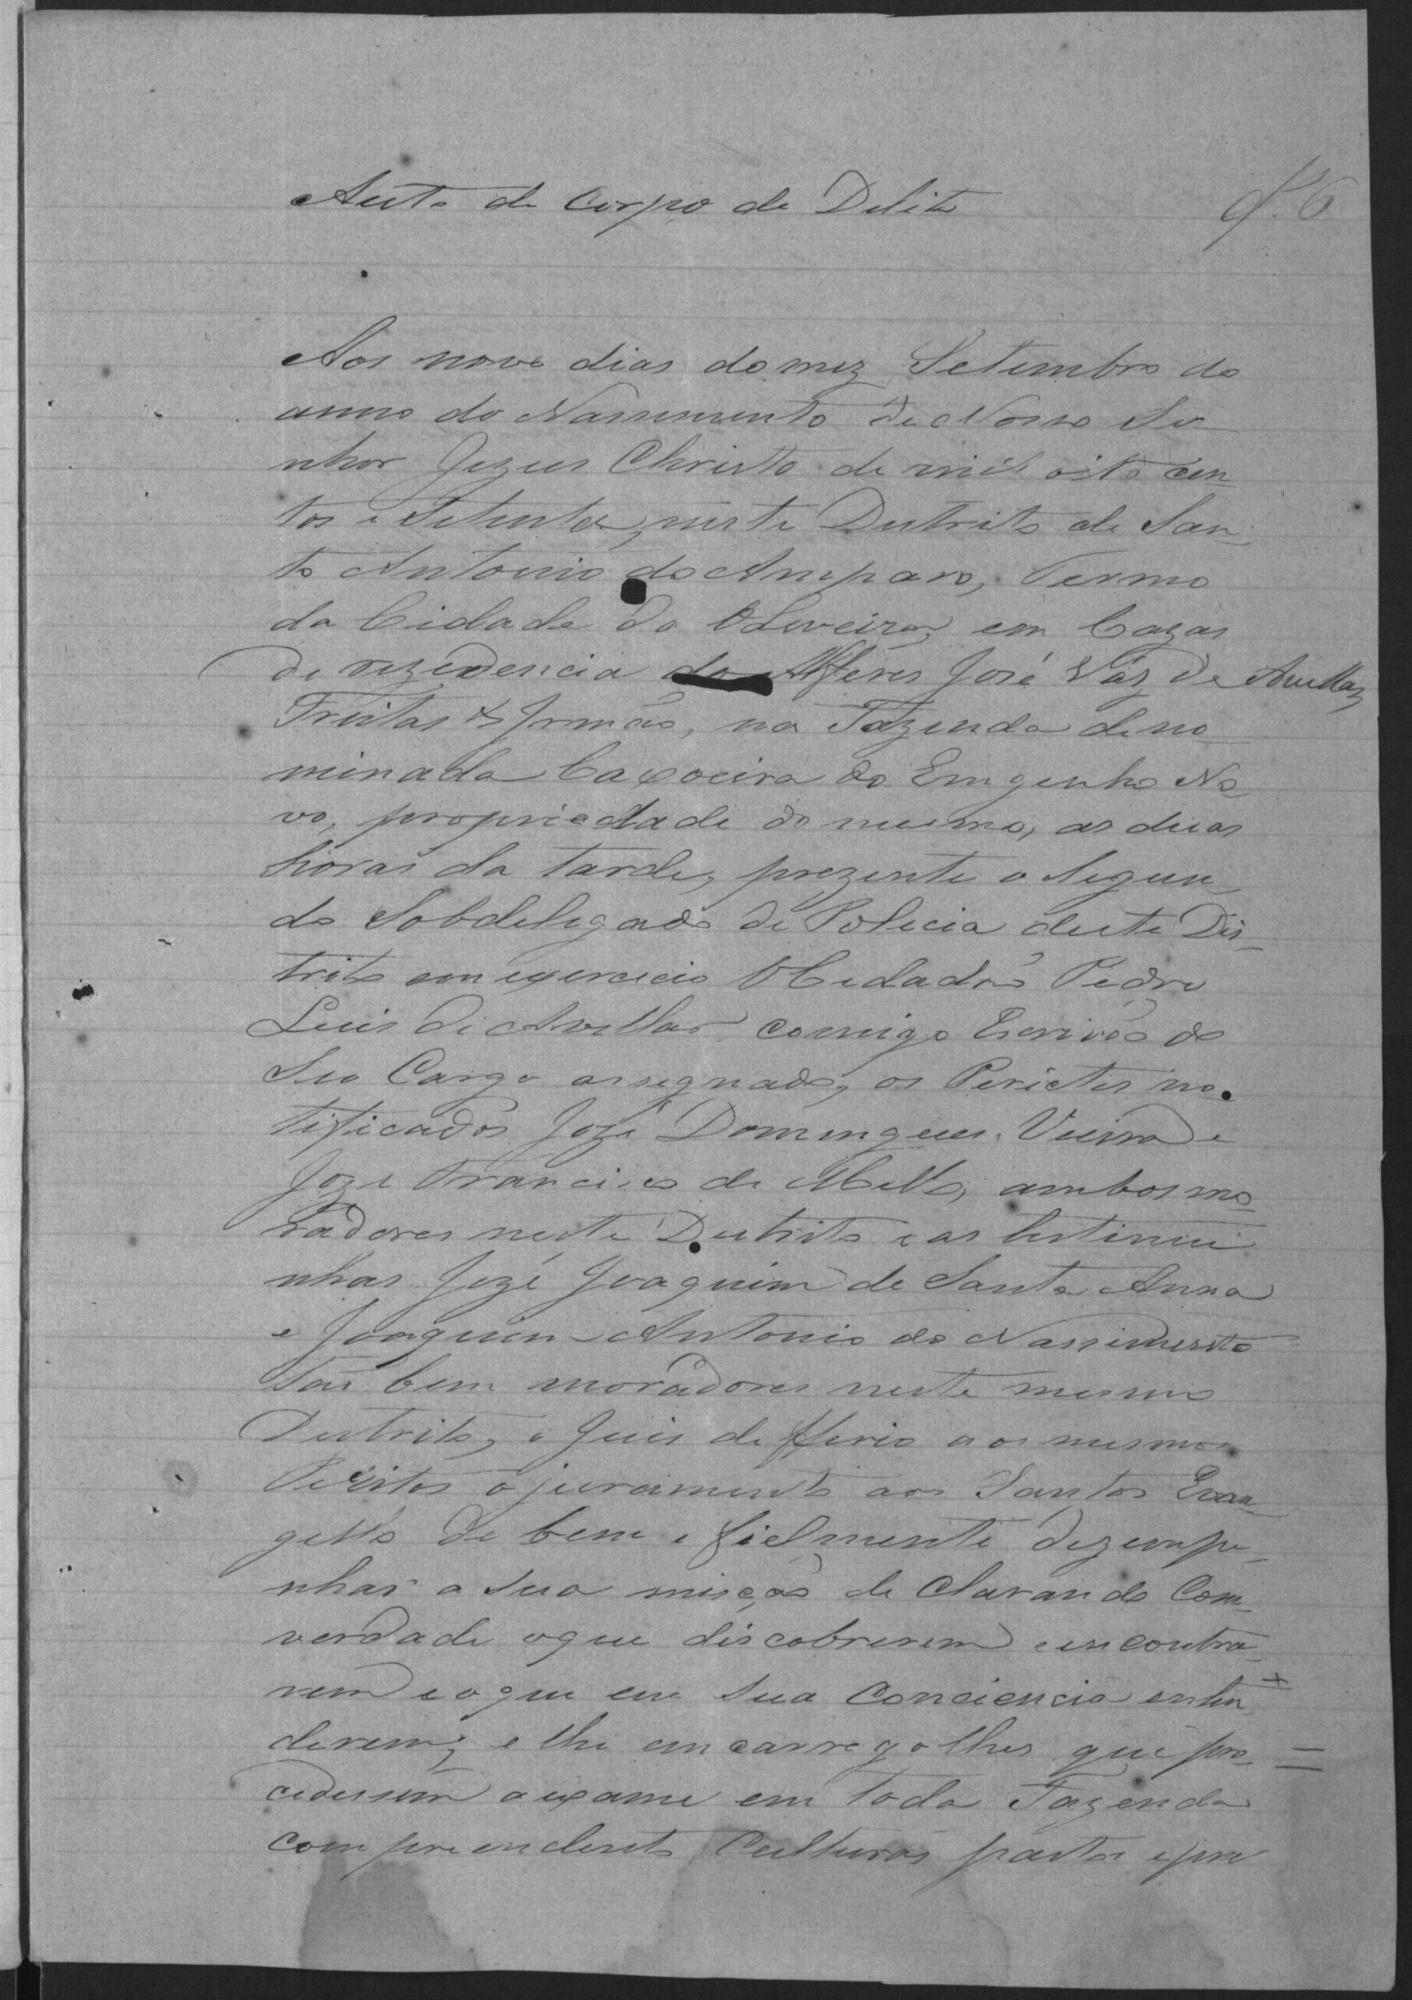 Auto de Corpo de Delito
f. 6
Aos nove dias do mez Setembro do
anno do Nassimento de Nosso Se
nhor Jezus Christo de mil oito cen
tos e Setenta, neste Distrito de San
to Antonio do Amparo, Termo
da Cidade do Oliveira, em Cazas
de rezedencia do Alferes José Váz de Avellar
Freitas & Irmão, na Fazenda deno
minada Caxoeira do Emgenho No
vo, propriedade do mesmo, as duas
horas da tarde, prezente o Segun
do Sobdelegado de Policia deste Dis
trito em exercicio O Cidadão Pedro
Luis de Avellar comigo Escrivão do
Seu Cargo assegnado, os Perictos no
tificados Jozé Domingues Vieira e
Joze Francisco de Mello, ambos mo
radores neste Distrito e as testimu
nhas Jozé Joaquim de Santa Anna
e Joaquim Antonio do Nassimento
tão bem moradores neste mesmo
Distrito, o Juis defferio a os mesmos
Peritos o juramento aos Santos Evan
gello de bem e fielmente dezempe
nhar a sua misção de Clarando Com
verdade oque discobrirem e encontra
rem e oque em sua Conciencia enten
derem; e lhe encarregolhes que pro
cedessem a exame em toda Fazenda
compreendento Culturas pastos e pre